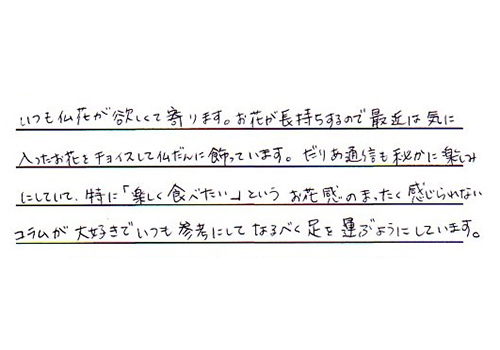 いつも仏花が欲しくて寄ります。お花が長持ちするので最近は気に
入ったお花をチョイスして仏だんに飾っています。だりあ通信も秘かに楽しみ
にしていて、特に「楽しく食べたい」という お花感のまったく感じられない
コラムが大好きでいつも参考にしてなるべく足を運ぶようにしています。